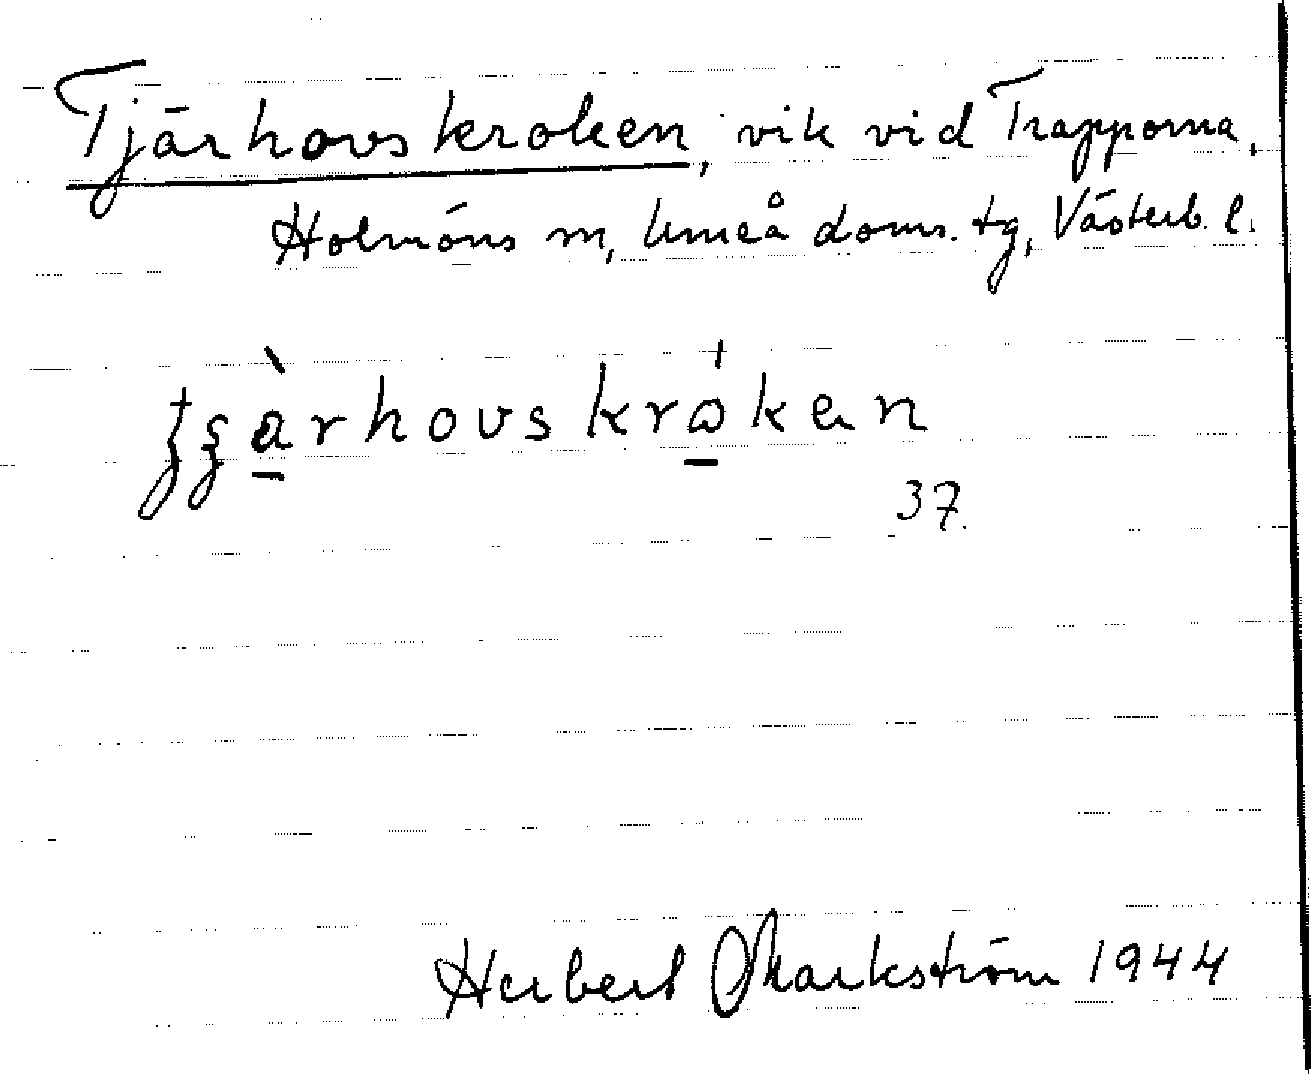 Tjärhovskroken, vik vid Trapporna,
Holmöns sn, Umeå doms. tg, Västerb. l.
37.
Herbert Markström 1944